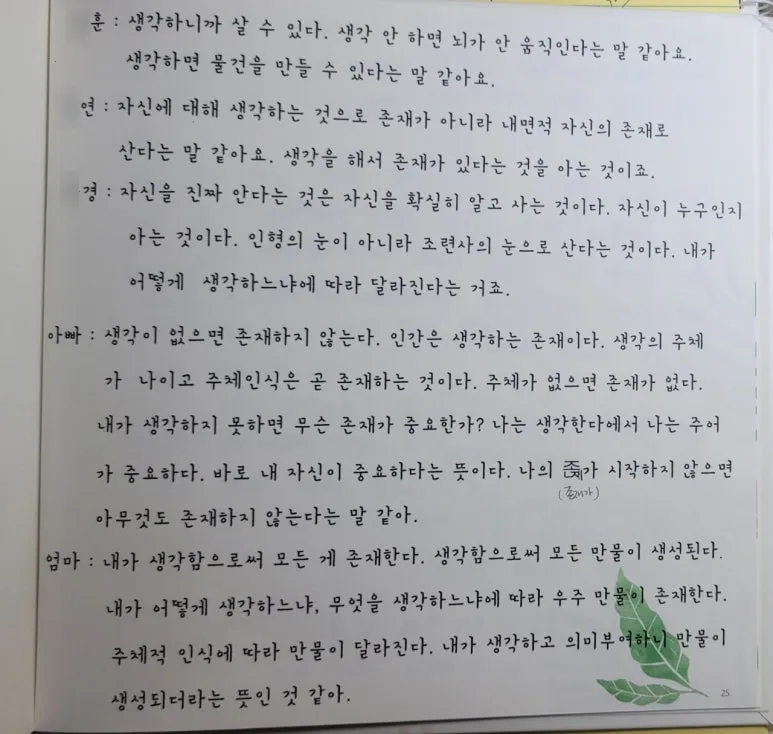 훈 : 생각하니까 살 수 있다. 생각 안 하면 뇌가 안 움직인다는 말 같아요.
생각하면 물건을 만들 수 있다는 말 같아요.
연 : 자신에 대해 생각하는 것으로 존재가 아니라 내면적 자신의 존재로
산다는 말 같아요. 생각을 해서 존재가 있다는 것을 아는 것이죠.
경 : 자신을 진짜 안다는 것은 자신을 확실히 알고 사는 것이다. 자신이 누구인지
아는 것이다. 인형의 눈이 아니라 조련사의 눈으로 산다는 것이다. 내가
어떻게 생각하느냐에 따라 달라진다는 거죠.
아빠 : 생각이 없으면 존재하지 않는다. 인간은 생각하는 존재이다. 생각의 주체
가 나이고 주체인식은 곧 존재하는 것이다. 주체가 없으면 존재가 없다.
내가 생각하지 못하면 무슨 존재가 중요한가? 나는 생각한다에서 나는 주어
가 중요하다. 바로 내 자신이 중요하다는 뜻이다. 나의 가 시작하지 않으면
(존재가)
아무것도 존재하지 않는다는 말 같아.
엄마 : 내가 생각함으로써 모든 게 존재한다. 생각함으로써 모든 만물이 생성된다.
내가 어떻게 생각하느냐, 무엇을 생각하느냐에 따라 우주 만물이 존재한다.
주체적 인식에 따라 만물이 달라진다. 내가 생각하고 의미부여하니 만물이
생성되더라는 뜻인 것 같아.
25